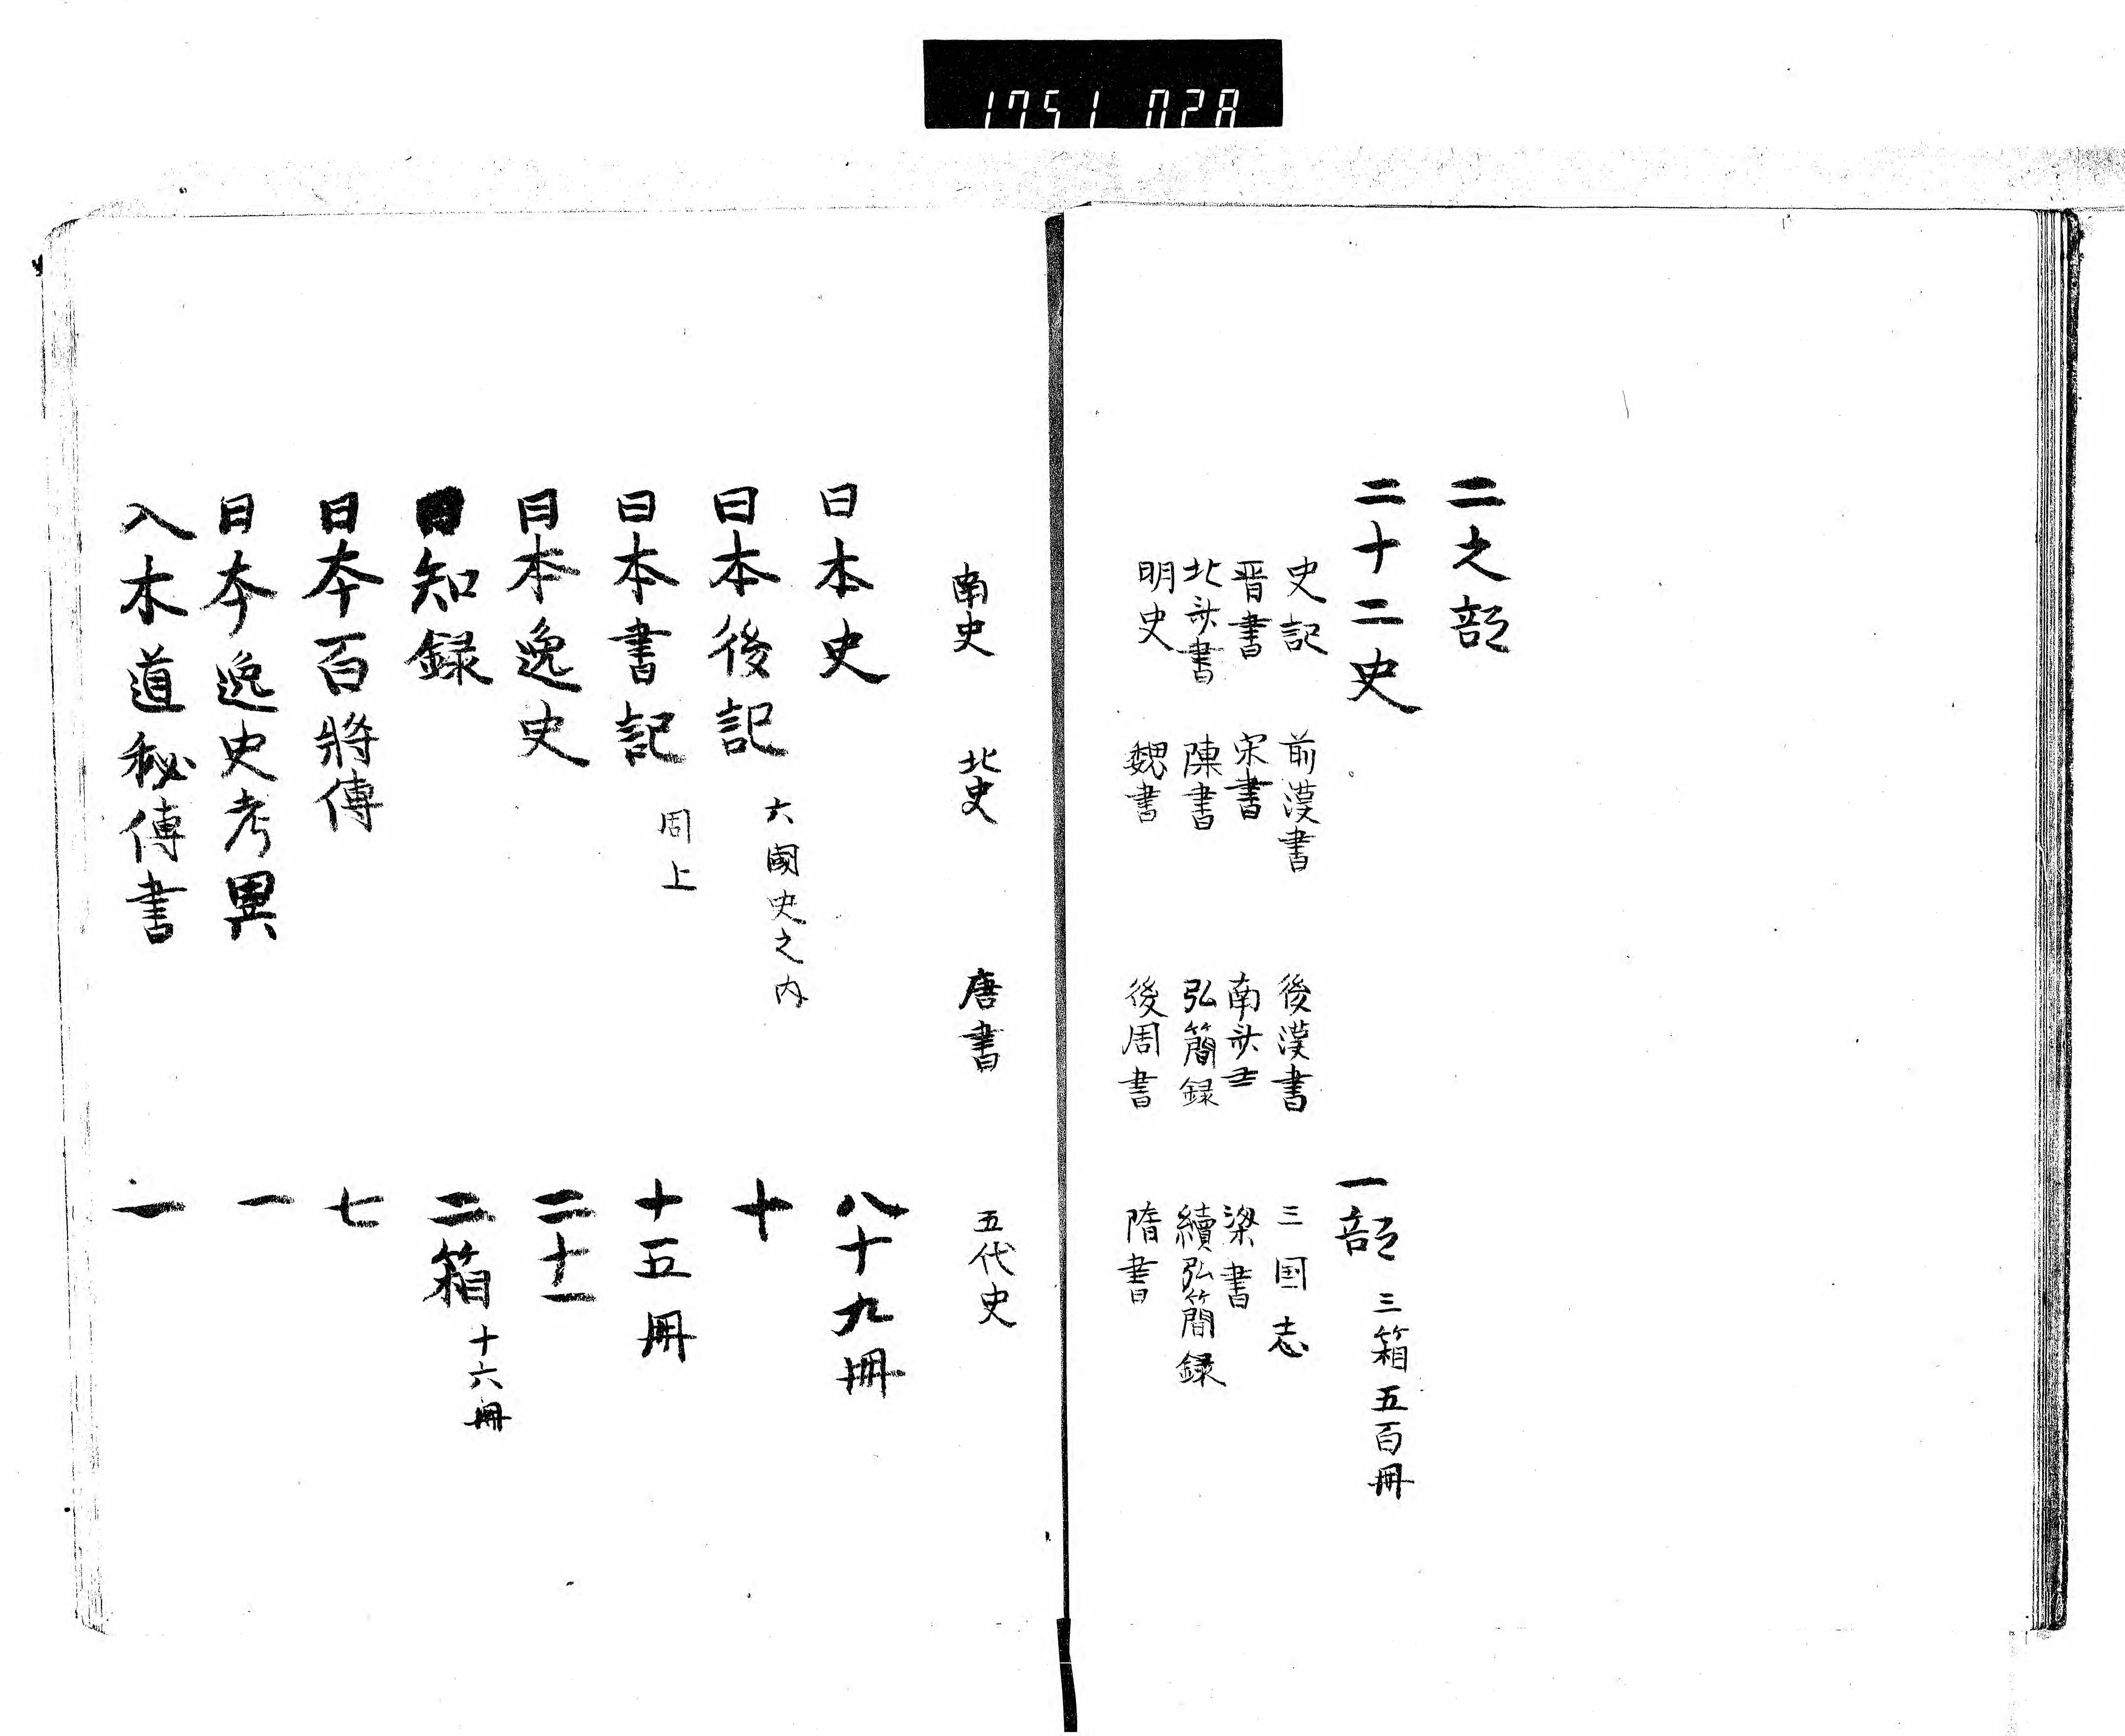 1751 028
二之部
二十二史 一部 三箱五百冊
史記 前漢書 後漢書 三国志
晋書 宋書 南斉書 梁書
北斉書 陳書 弘簡録 續弘簡録
明史 魏書 後周書 隋書
南史 北史 唐書 五代史
日本史 八十九冊
日本後記 六國史之内 十
日本書記 同上 十五冊
日本逸史 二十一
日知録 二箱 十六冊
日本百將傳 七
日本逸史考異 一
入木道秘傳書 一